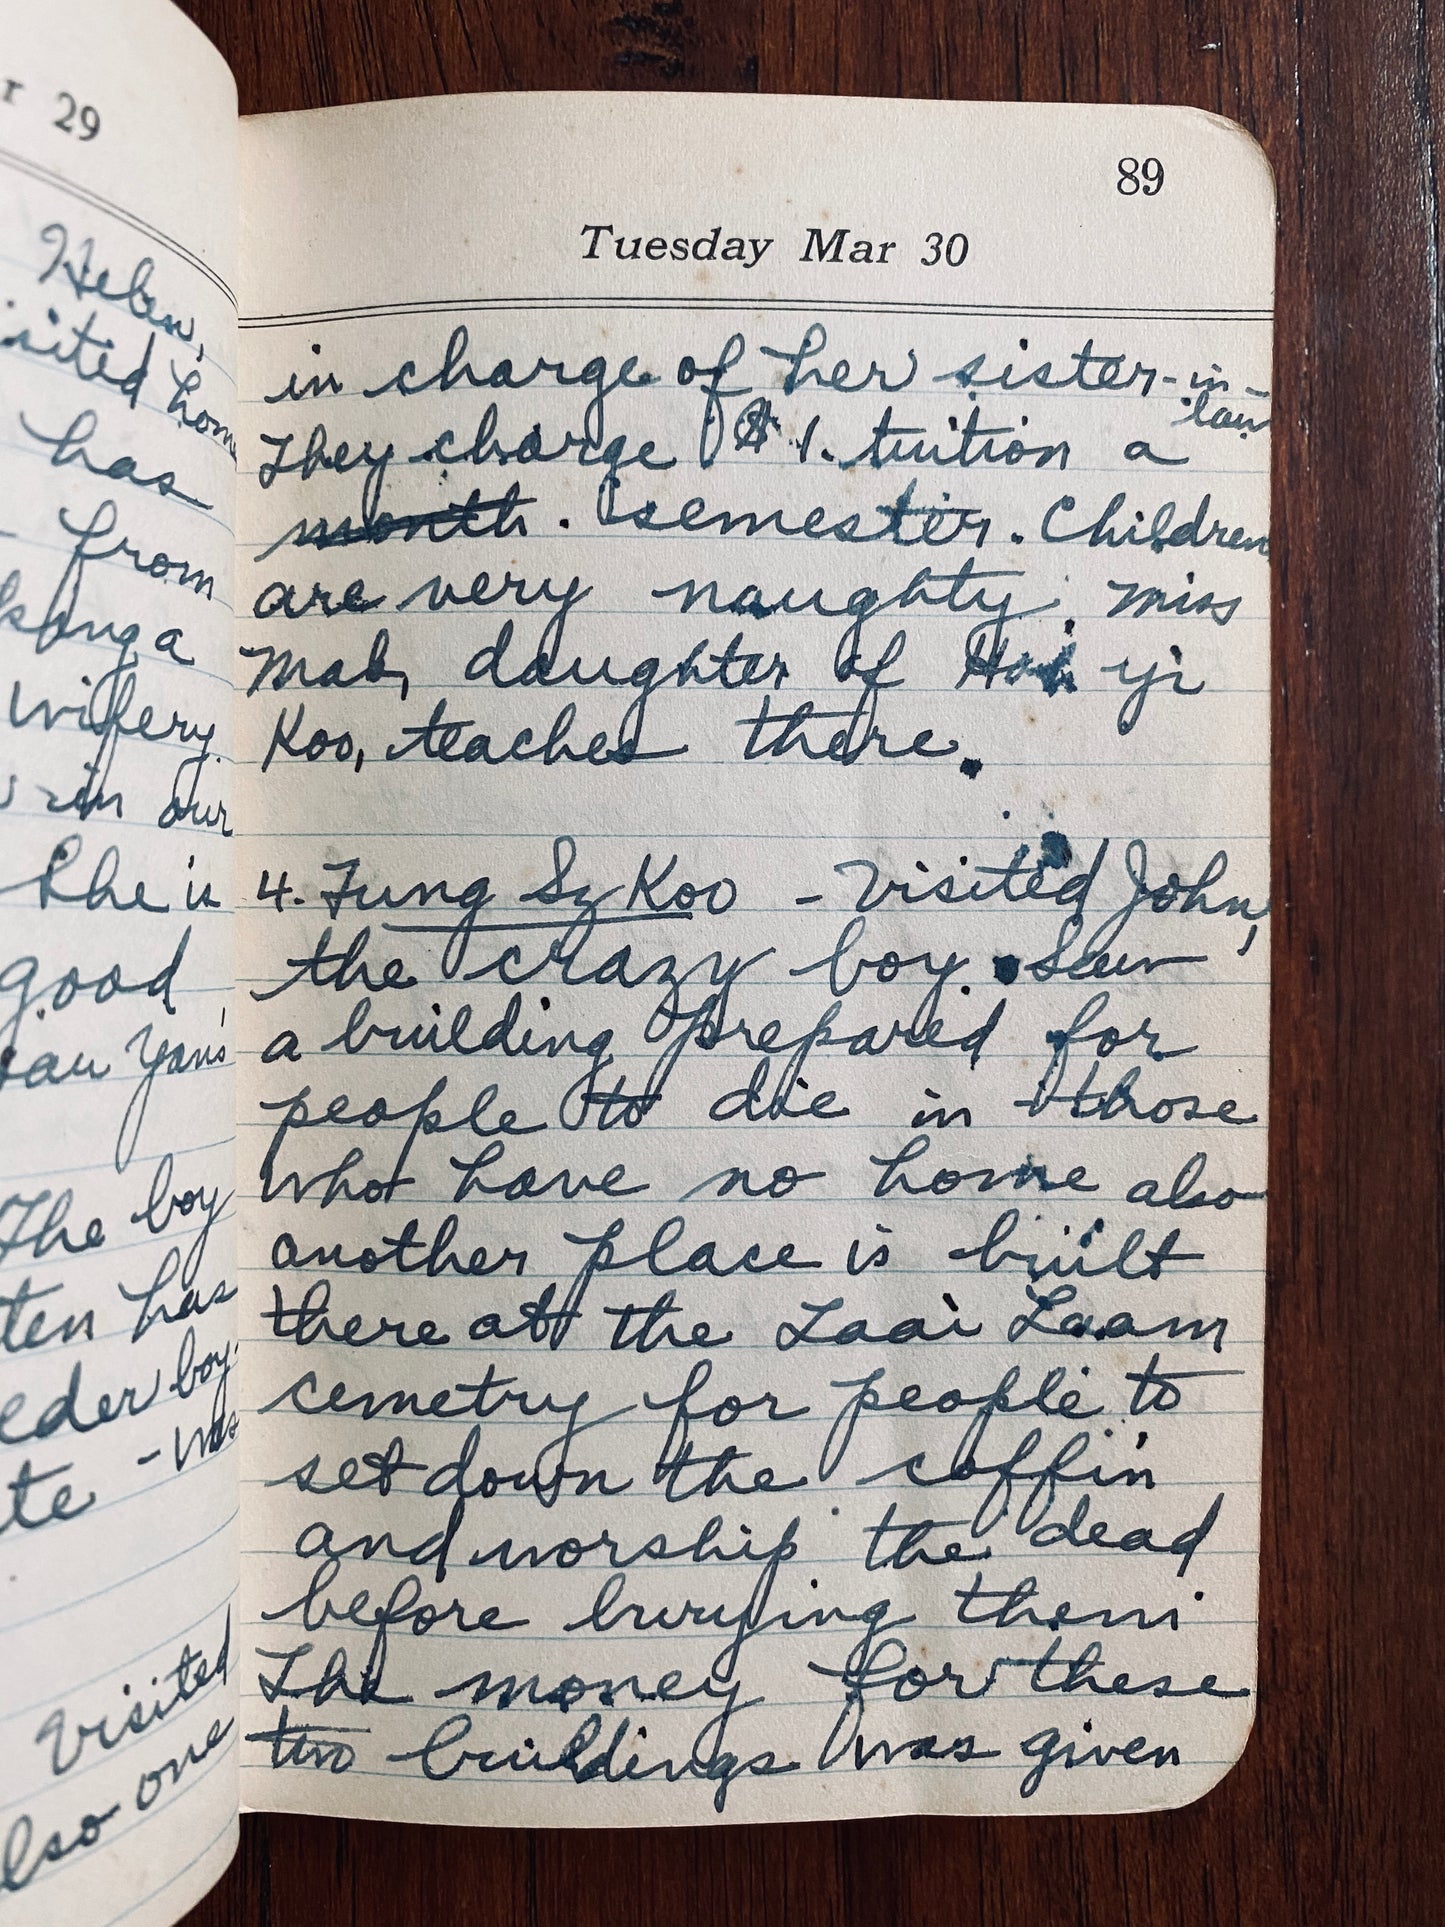 r 29
Helen,
isited home
has
- from
a
wifery.
in our
She is
good
Yan's
The boy
ten has
eder boy.
te - was
visited
lso one
89
Tuesday Mar 30
in charge of her sister-in-law
They charge $1. tuition a
month. semester. Children
are very naughty. Miss
Mab, daughter of yi
Koo, teaches there.
4. Fung Sz Koo - Visited John,
the crazy boy. Saw
a building prepared for
people to die in those
who have no home also
another place is built
there at the Laai Laam
cemetry for people to
set down the coffin
and worship the dead
before burying them
The money for these
two buildings was given